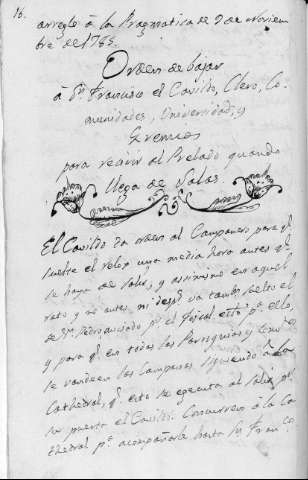 16.
arreglo à la Pragmatica de 9 de Noviem
bre de 1785.
Orden de bajar
à Sn. Francisco el Cavildo, Clero, Co-
munidades, Universidad, y
Gremios
para recivir al Prelado quando
llega de Salas
El Cavildo da orden al Campanero para qe.
suelte el Relox una media hora antes qe.
se haya de salir, y assimismo en aquel
rato y no antes,
de Sn. Pedro
y para qe. en todas las Parroquias y
se bandeen las Campanas siguiendo à la
Cathedral, qe. esto se egecuta al salir pr.
su puerta el Cavildo. Concurren à la Ca-
thedral pa. acompañarle hasta Sn. Franco.